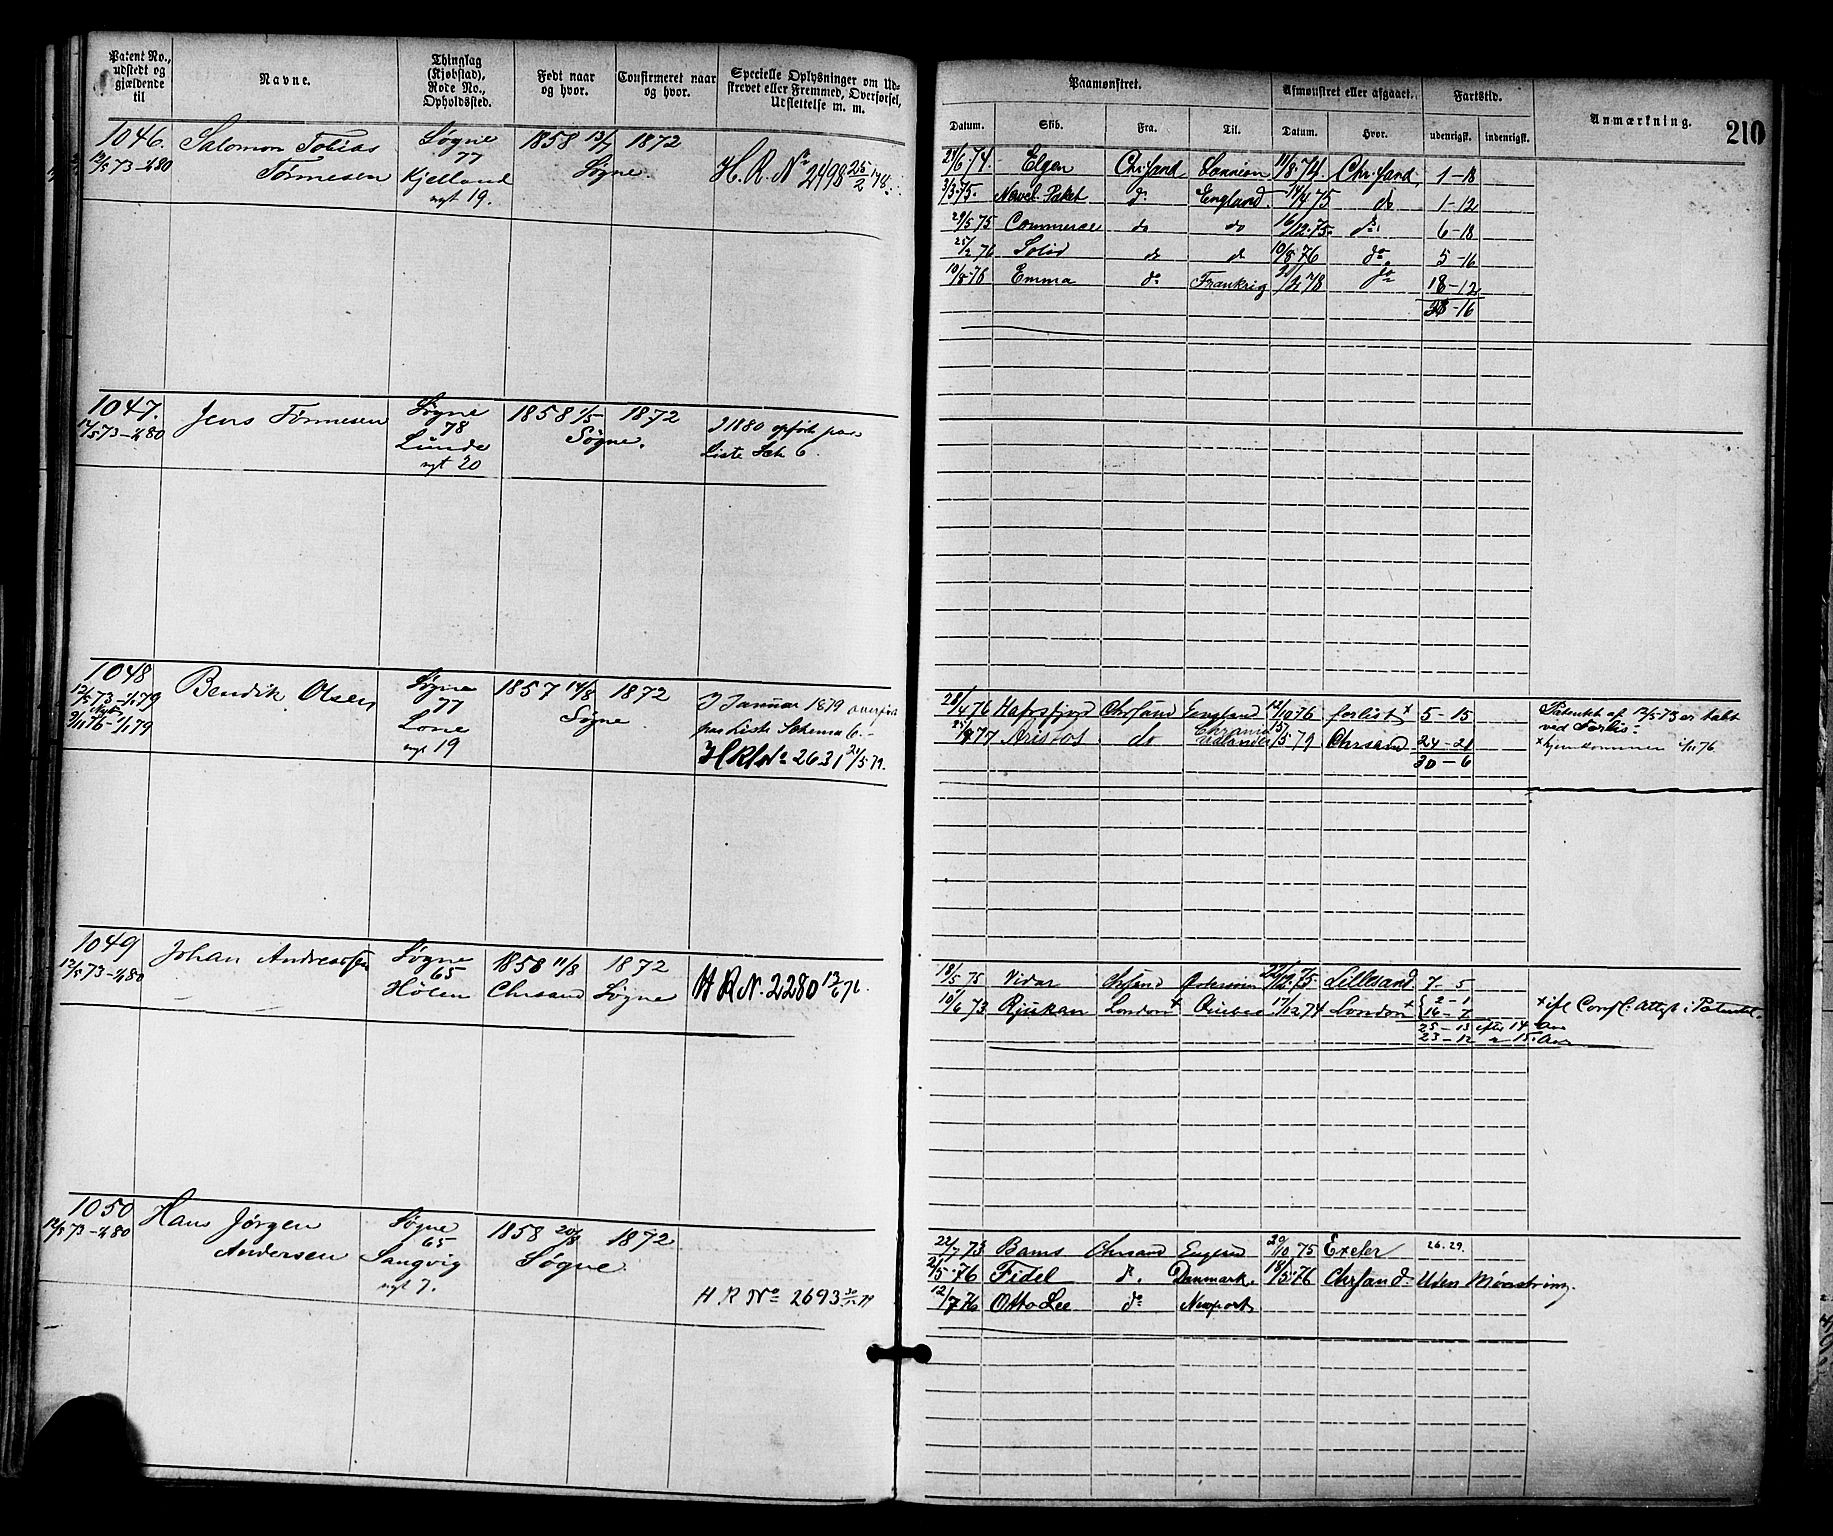 Patent No., udstedt og gjældende til
Navne.
Thinglag (Kjøbstad), Rode No., Opholdssted.
Født naar og hvor.
Confirmeret naar og hvor.
Specielle Oplysninger om Udskrevet eller Fremmed, Overførsel, Udslettelse m. m.
1046. Salomon Tobias Søgne 1858 13/7 1872
12/5 73-1/1 80 Tønnesen 77 Søgne
Kjelland H. R. No 2498 25/2 78.
nyt 19.
1047. Jens Tønnesen Søgne 1858 1/5 1872
12/5 73-1/1 80 78 Søgne. I 1880 opført paa
Lunde Liste Sch 6.
nyt 20
1048 Bendik Olsen Søgne 1857 14/8 1872
12/5 73-1/1 79 77 Søgne I Januar 1879 overført
Nyt Lone paa Liste Schema 6.-
9/11 76-1/1 79 nyt 19 H R No 2631 21/5 79.
1049 Johan Andreassen Søgne 1858 11/8 1872
12/5 73-1/1 80 65 H R N. 2280 13/6 76
Hølen Chrsand Søgne
1050 Hans Jørgen Søgne 1858 20/8 1872
12/5 73-1/1 80 Andersen 65 Søgne
Langvig
nyt 7. H R No 2693
Paamønstret.
Afmønstret eller afgaaet.
Fartstid.
Anmærkning.
210
Datum. Skib. Fra. Til. Datum. Hvor. udenrigsk. indenrigsk.
24/6 74. Elgen Chrsand Lannion 11/8 74. Chrsand, 1-18
3/3 75. Navel. Paket do England. 14/4 75 do 1-12
29/5 75 Commerce do do 16/12 75. do 6-18
25/2 76 Solid do do 10/8 76 do. 5-16
10/8 76 Emma do Frankrig /2 78 do 18-12
-16
28/4 76 Hafrsfjord Chrsand England 12/10 76 forlist x 5-15 Patentet af 12/5 73 er tabt
ved Forlis.
77 Aristos do udlandet 15/5 79 Chrsand 24-21 x hjemkommen 76
30-6
18/5 75 Vidar Chrsand 75. Lillesand 7-5
10/6 73 Rjukan London x Quebec 17/12 74 London x 2-1 x ifl Consl: Attest i Patentet.
16-7
25-13 efter 14. Aar
23-12 " 15. Aar
22/7 73 Bams Chrsand England 20/10 75 Exeter 26. 29.
2/5 76 Fidel do. Danmark. 18/5 76 Chrsand. Uden Mønstring.
12/7 76 Otto Lee do Newport